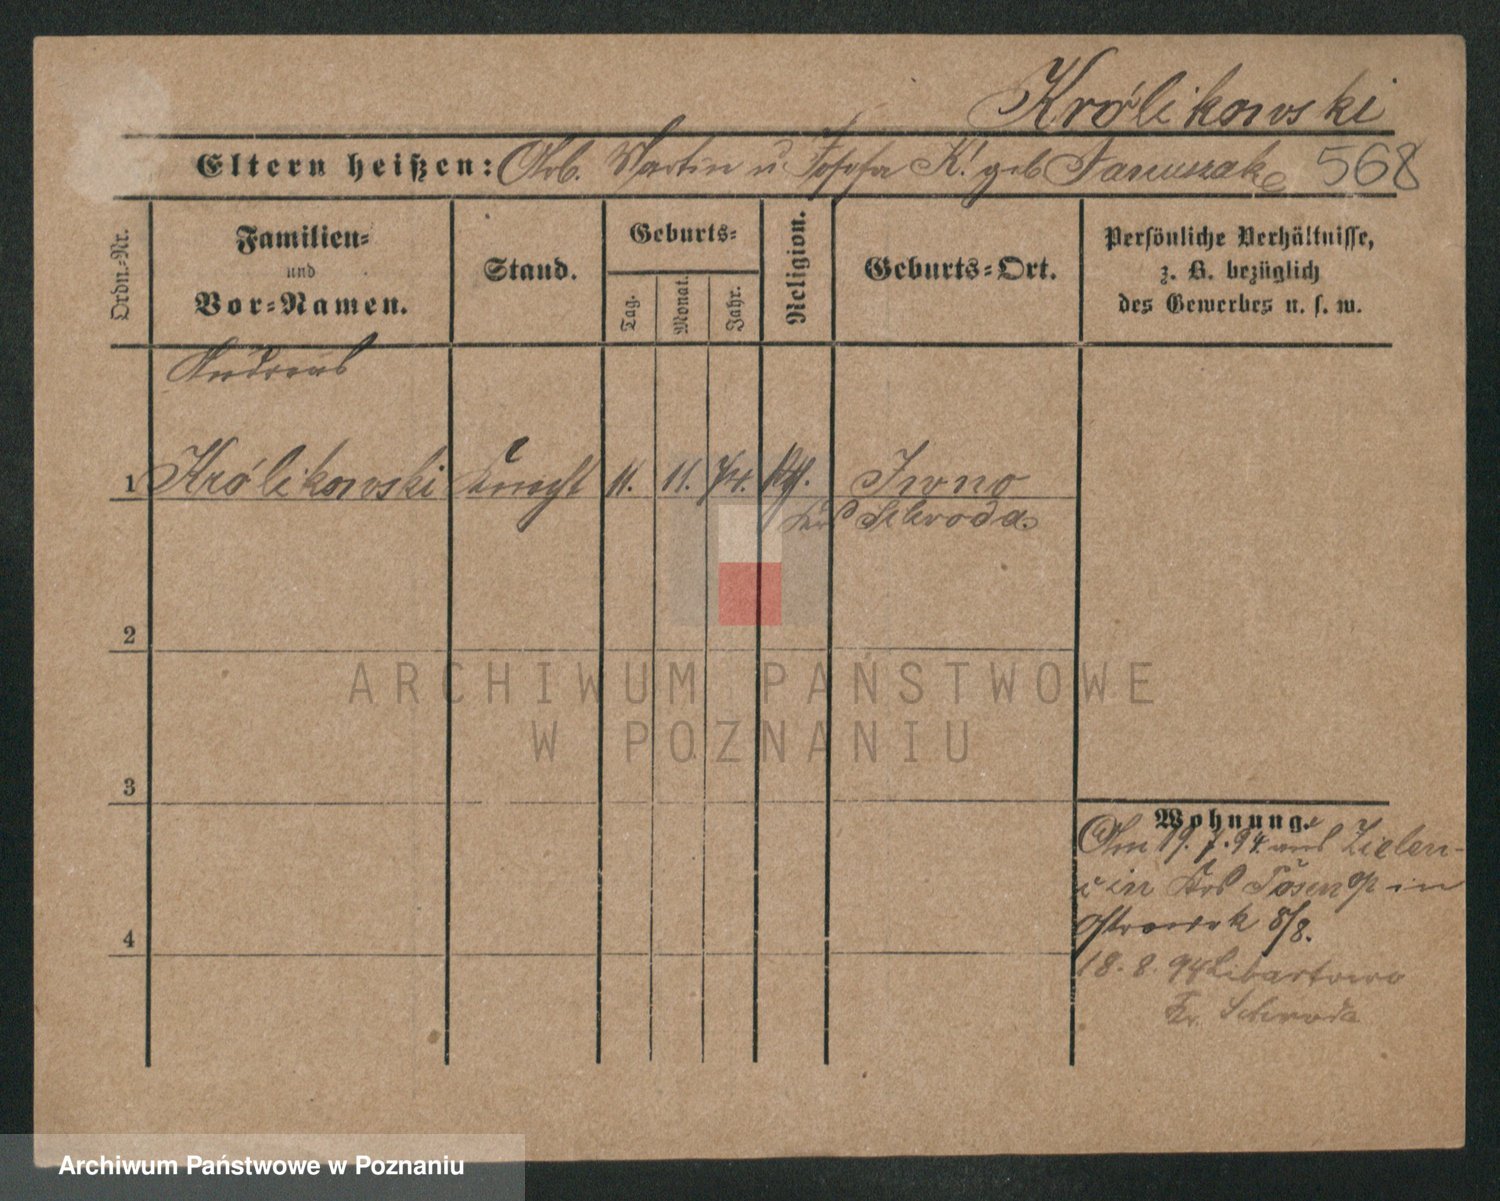 Królikowski
Eltern heißen: Arb. Martin u. Josefa K. geb Januszak 568
Ordn.-Nr.
Familien-
und
Vor-Namen.
Stand.
Geburts-
Tag.
Monat.
Jahr.
Religion.
Geburts-Ort.
Persönliche Verhältnisse,
z. B. bezüglich
des Gewerbes u. s. w.
Andreas
1 Królikowski Knecht 11. 11. 74. kth. Iwno
Krs Schroda
2
3
4
Wohnung.
Am 19. 7. 94. aus Zielen-
in Krs Posen in
Ostrowek 8/8.
18. 8. 94 Libartowo
Kr. Schroda
ARCHIWUM PAŃSTWOWE
W POZNANIU
Archiwum Państwowe w Poznaniu